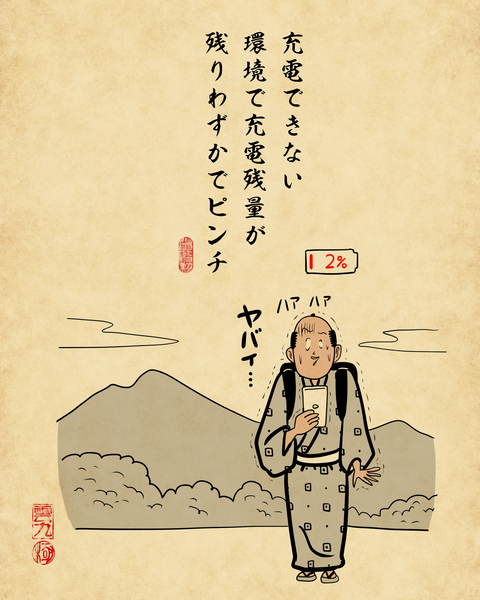 充電できない
環境で充電残量が
残りわずかでピンチ
2%
ハァ ハァ
ヤバィ…